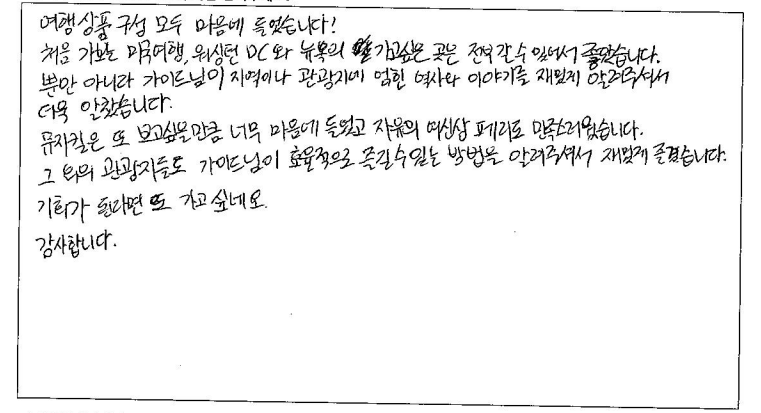 여행상품 구성 모두 마음에 들었습니다!
처음 가보는 미국여행, 워싱턴 DC와 뉴욕의 가고싶은 곳은 전부 갈 수 있어서 좋았습니다.
뿐만 아니라 가이드님이 지역이나 관광지에 얽힌 역사와 이야기를 재밌게 알려주셔서
더욱 알찼습니다.
뮤지컬은 또 보고싶을만큼 너무 마음에 들었고 자유의 여신상 페리도 만족스러웠습니다.
그 외의 관광지들도 가이드님이 효율적으로 즐길 수 있는 방법을 알려주셔서 재밌게 즐겼습니다.
기회가 된다면 또 가고 싶네요.
감사합니다.